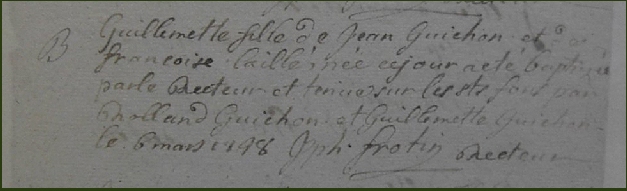 B Guillemette fille de Jean Guichon et de
francoise laillé née ce jour a eté baptisée
par le Recteur et tenue sur les sts fons par
Rolland Guichon et Guillemette Guichon
le 6 mars 1798 Jph. frotin Recteur